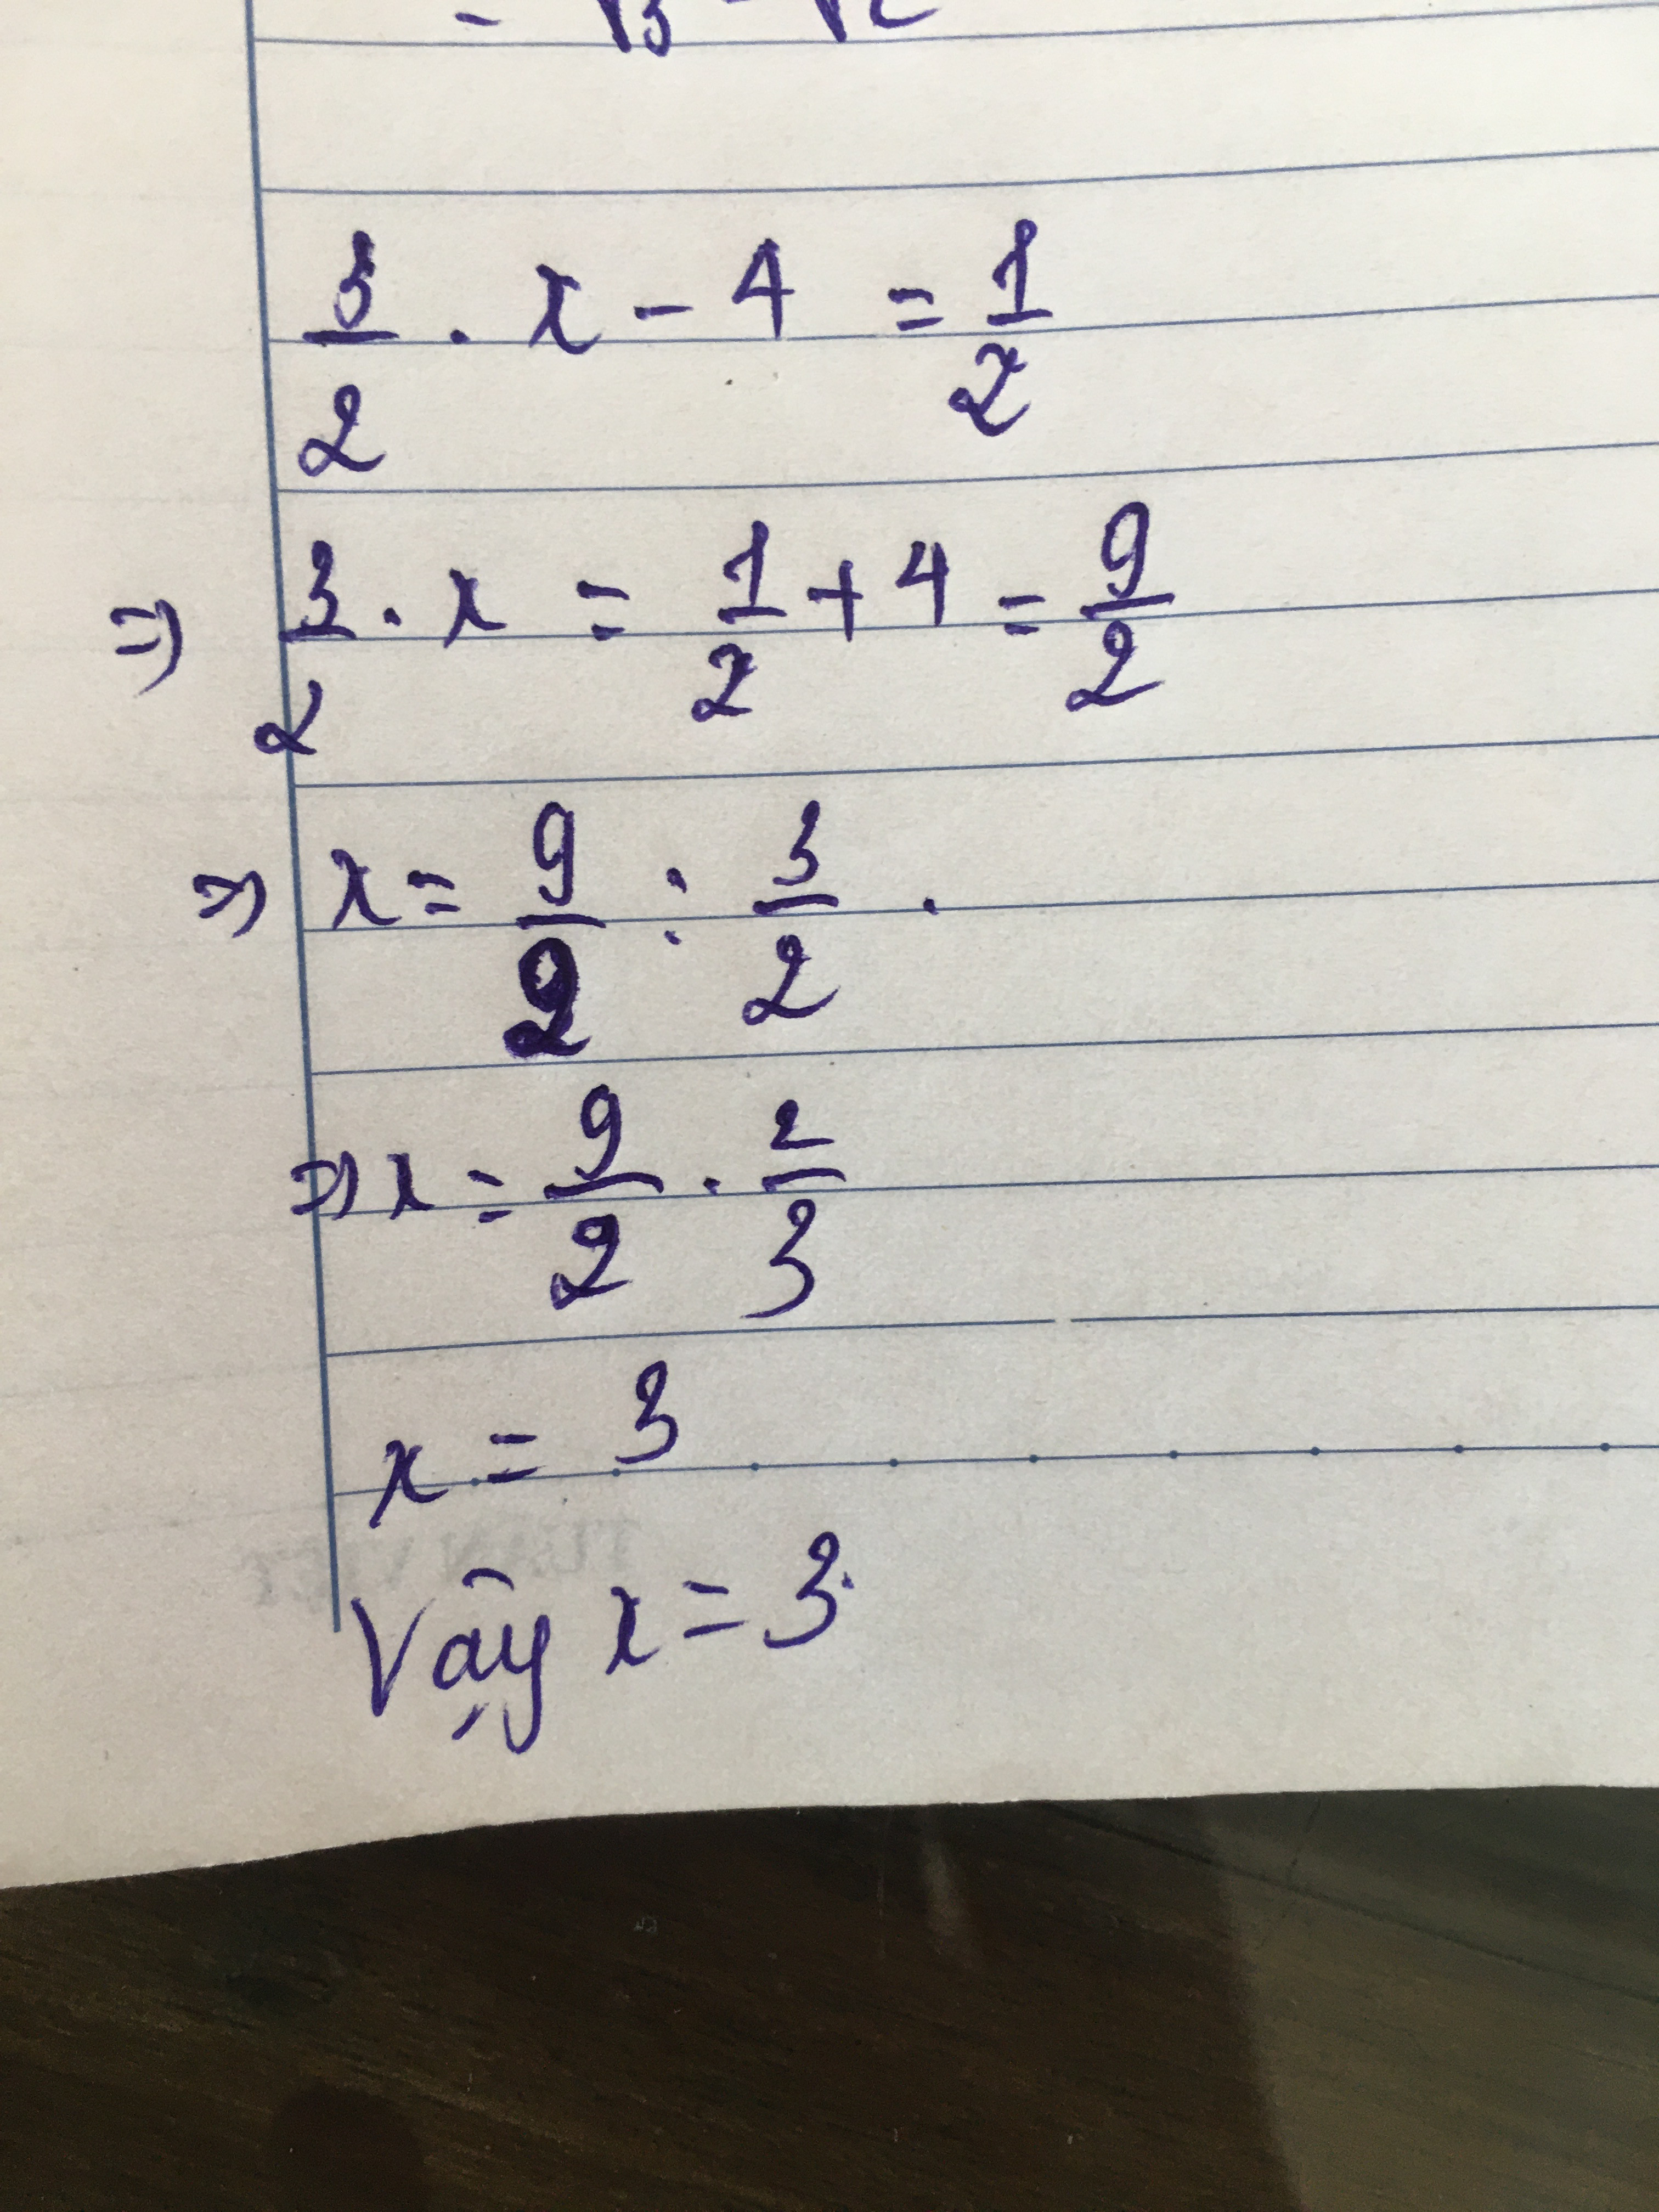 = √3 - √2
3/2 . x - 4 = 1/2
=> 3/2 . x = 1/2 + 4 = 9/2
=> x = 9/2 : 3/2 .
=> x = 9/2 . 2/3
x = 3
Vậy x = 3.